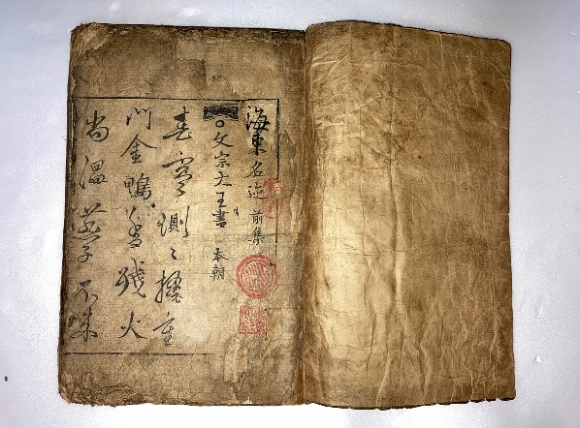 海東名迹 前集
○文宗大王書 本朝
春寒惻〻掩重
門金鴨香殘火
尚温燕子不來